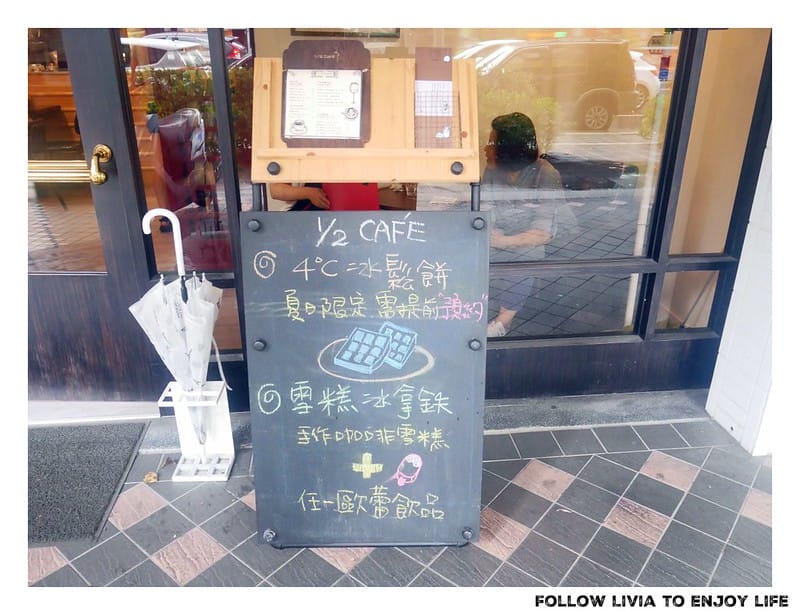 1/2 CAFÉ
4°C 冰鬆餅
夏日限定 需提前"預約"
雪糕冰拿鉄
手作咖啡雪糕
+
任一歐蕾飲品
FOLLOW LIVIA TO ENJOY LIFE